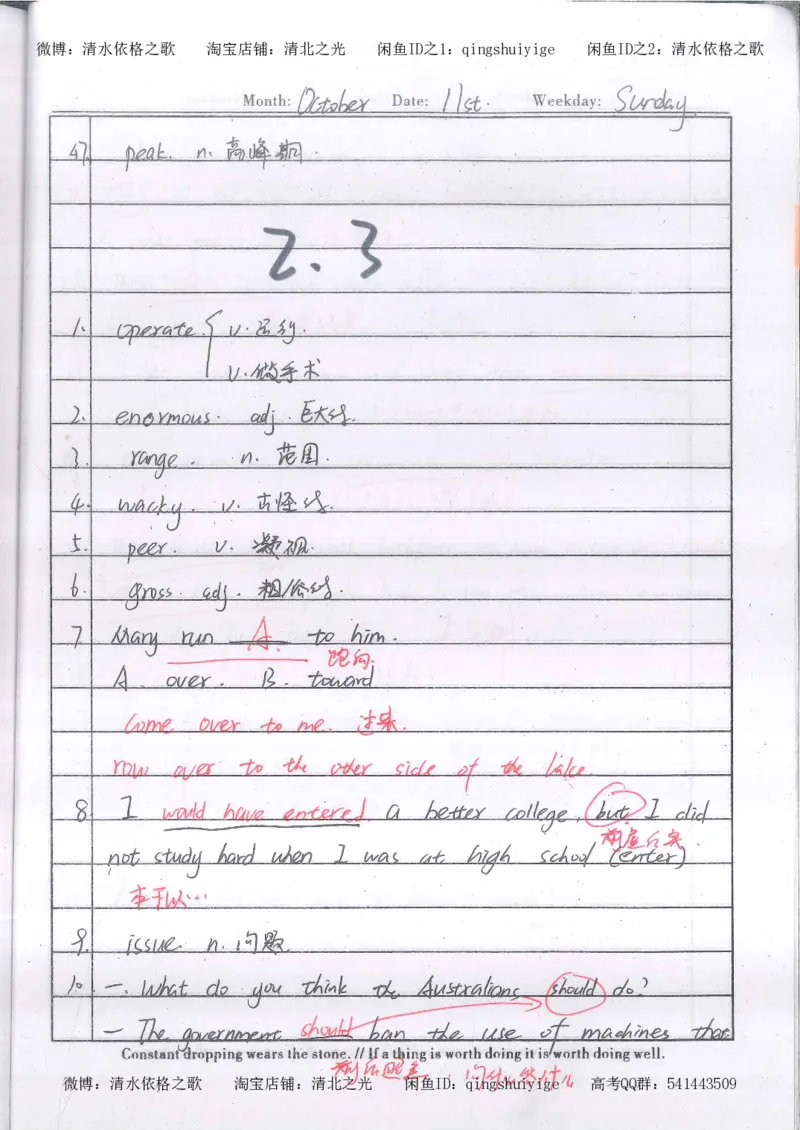 微博：清水依格之歌 淘宝店铺：清北之光 闲鱼ID之1：qingshuiyige 闲鱼ID之2：清水依格之歌
Month: October Date: 11st. Weekday: Sunday
47. peak. n. 高峰期.
2.3
1. operate. { v. 运行.
v. 做手术
2. enormous. adj. 巨大的.
3. range. n. 范围.
4. wacky. v. 古怪的.
5. peer v. 凝视.
6. gross. adj. 粗俗的.
7 Mary run A. to him.
跑向.
A. over. B. toward
Come over to me. 过来.
row over to the other side of the lake.
8. I would have entered a better college, but I did
not study hard when I was at high school (enter)
本可以…
9. issue n. 问题.
10. —. What do you think the Australians should do?
— The government should ban the use of machines that
Constant dropping wears the stone. // If a thing is worth doing it is worth doing well.
问什么答什么
微博：清水依格之歌 淘宝店铺：清北之光 闲鱼ID：qingshuiyige 高考QQ群：541443509